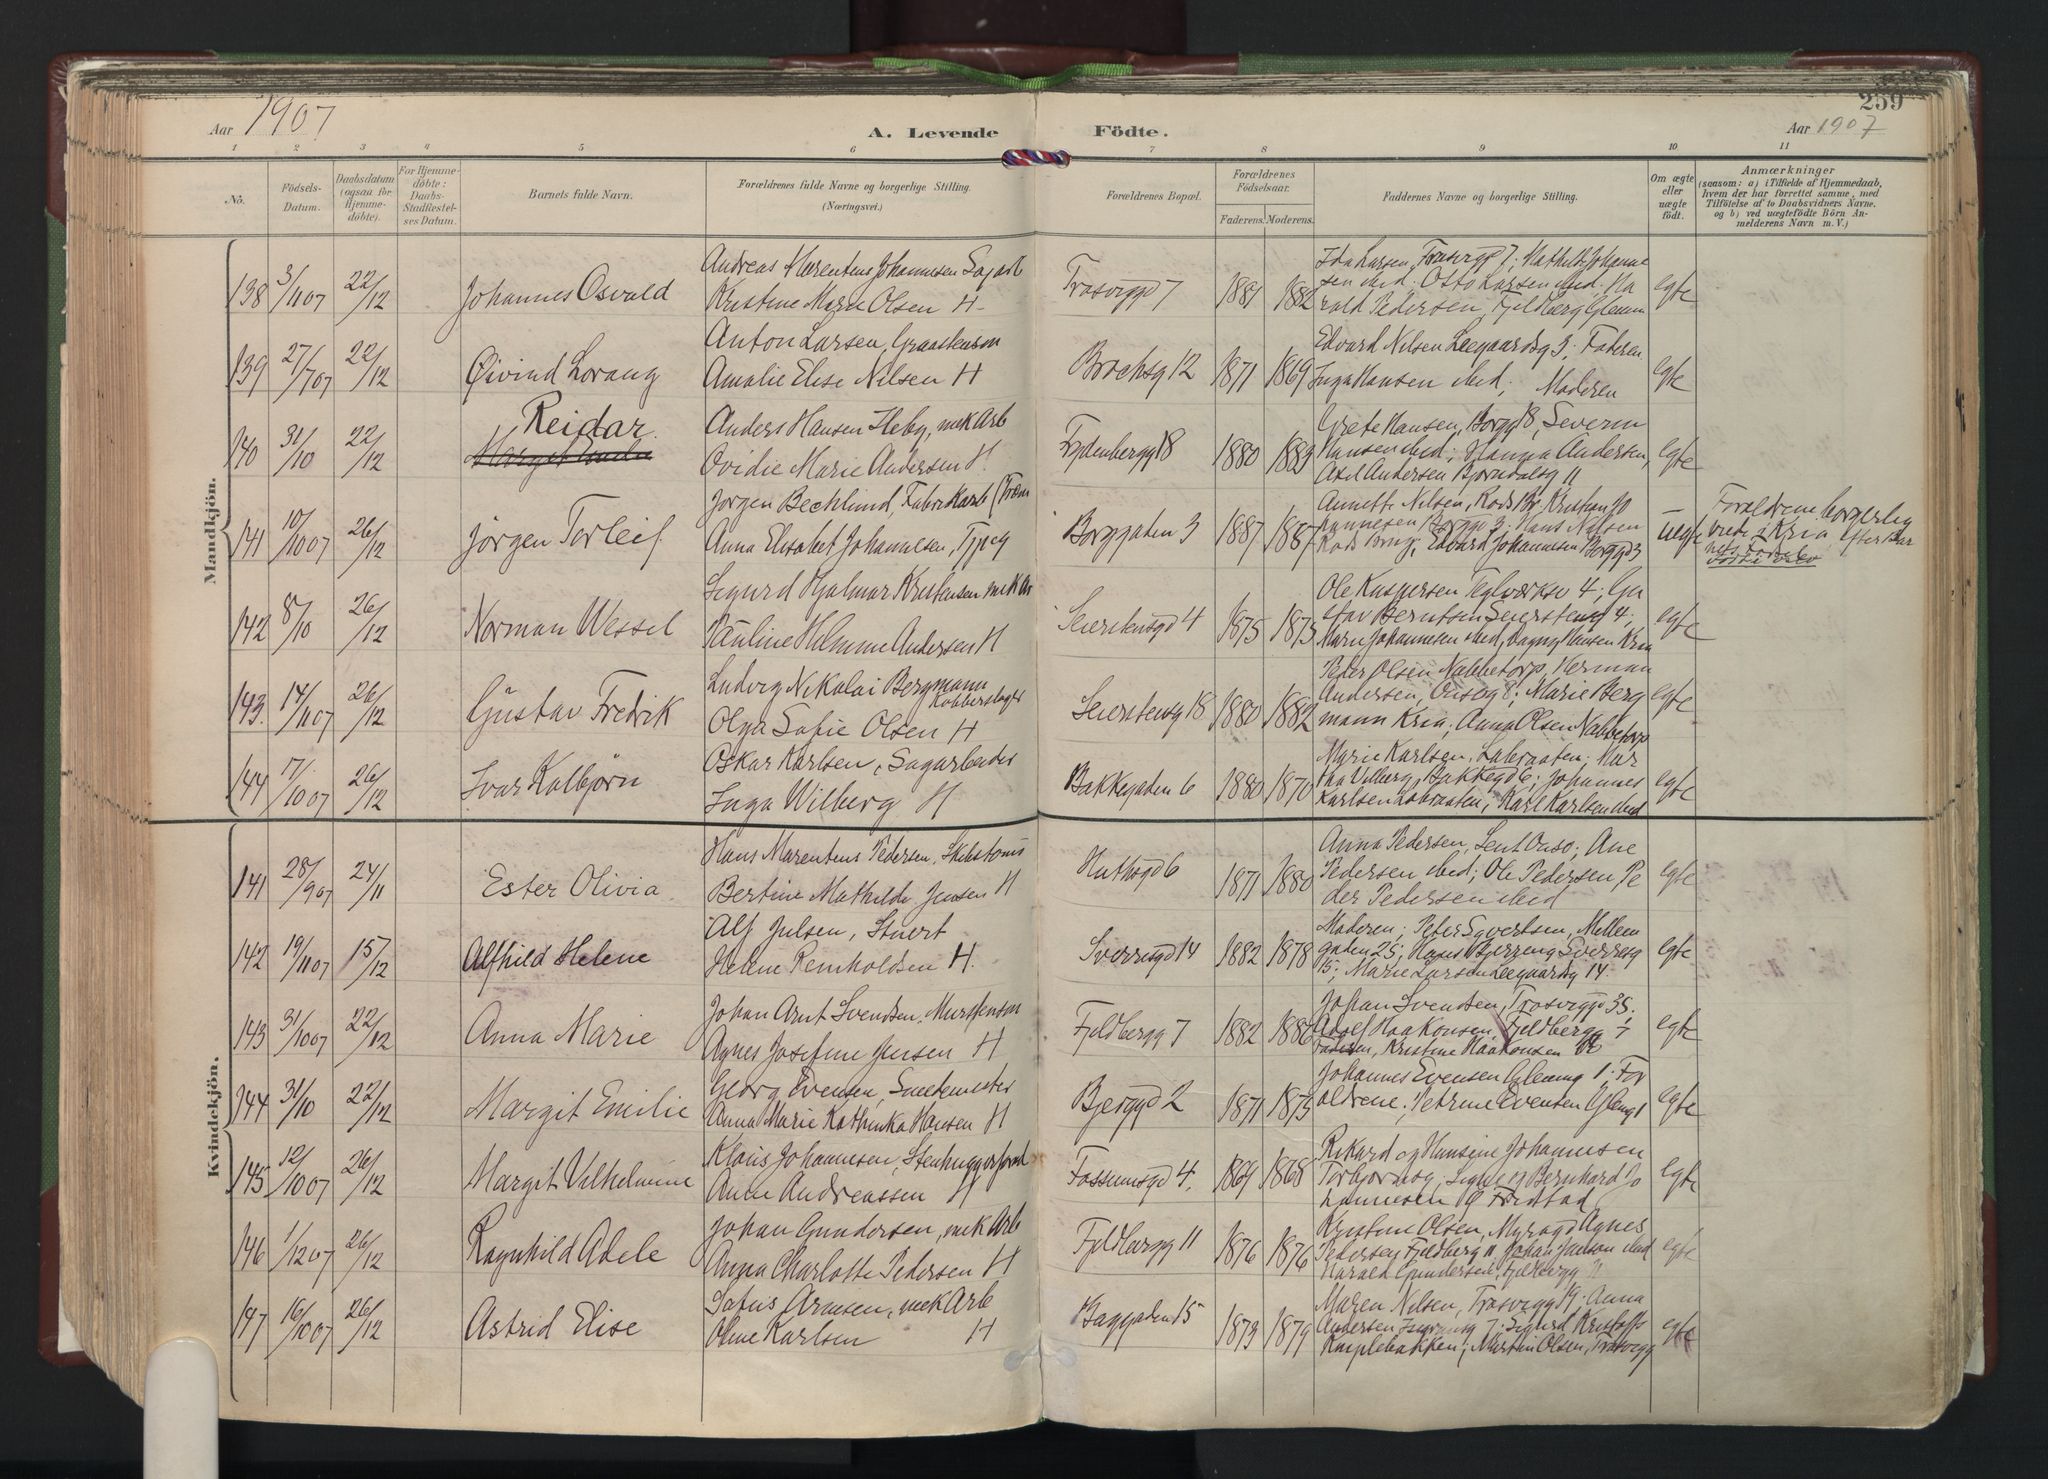 259
Aar 1907
A. Levende Födte.
Aar 1907
1 2 3 4 5 6 7 8 9 10 11
No.
Födsels-Datum.
Daabsdatum (ogsaa for Hjemmedöbte).
For Hjemmedöbte: Daabs-Stadfæstelses Datum.
Barnets fulde Navn.
Forældrenes fulde Navne og borgerlige Stilling.
(Næringsvei.)
Forældrenes Bopæl.
Forældrenes Födselsaar.
Faderens. Moderens.
Faddernes Navne og borgerlige Stilling.
Om ægte eller uægte födt.
Anmærkninger
(saasom: a) i Tilfælde af Hjemmedaab,
hvem der har forrettet samme, med
Tilföielse af to Daabsvidners Navne.
og b) ved uægtefödte Börn Anmelderens Navn m. V.)
Mandkjön.
138 3/11 07 22/12 Johannes Osvald
Andreas Marentius Johannesen Sagarb
Kristine Marie Olsen H
Trosviggd 7 1881 1882
Ida Larsen, Trosviggd 7; Mathild Johanne
sen ibid. Otto Larsen ibid. Ha
rald Pedersen, Fjeldberg Glemm
egte
139 27/7 07 22/12 Øivind Lorang
Anton Larsen, Graastensm
Amalie Elise Nilsen H
Brochsg 12 1871 1869
Edvard Nilsen Leegaardsg 3; Faderen
Inga Hansen ibid; Moderen
egte
140 31/10 22/12 Reidar
Anders Hansen Heby, mek Arb
Ovidie Marie Andersen H
Fredenbergg 18 1880 1883
Grete Hansen, Borgg 18, Severin
Hansen ibid; Hanna Andersen,
Axel Andersen Bjørndalsg 11
egte
141 10/10 07 26/12 Jørgen Torleif
Jørgen Becklund, Fabrikarb
Anna Elisabet Johannesen, Tjpeg
Borggaden 3 1887 1887
Annette Nilsen, Rods Br. Kristian Jo
hannesen Borgg 3. Hans Nilsen
Rods Brug; Edvard Johannesen Borggd 3
uegte
Forældrene borgerlig
viede i Kria efter Bar
nets Fødsel
142 8/10 26/12 Norman Wessel
Sigurd Hjalmar Kristensen mek Ar
Pauline Helmine Andersen H
Seierstensgd 4 1875 1875
Ole Kaspersen Teglværksv 4; Gu
stav Berntsen Seierstensg 4;
Marie Johannesen ibid, Dagny Hansen Kria
egte
143. 14/11 07 26/12 Gustav Fredrik
Ludvig Nikolai Bergmann
Kobberslager
Olga Sofie Olsen H
Seierstensg 18 1880 1882
Peder Olsen Nabbetorp, Herman
Andersen, Onsøg 8; Marie Berg
mann Kria; Anna Olsen Nabbetorp
egte
144 17/10 07 26/12 Ivar Kolbjørn
Oskar Karlsen, Sagarbeider
Inga Wilberg H
Bakkegaden 6 1880 1870
Marie Karlsen, Labraaten; Mar
tha Vilberg, Bakkegd 6; Johannes
Karlsen Labraaten; Karl Karlsen ibid
egte
Kvindekjön.
141 28/9 07 24/11 Ester Olivia
Hans Marentius Pedersen, Skibstømr
Bertine Mathilde Jensen H
Huthsgd 6 1871 1880
Anna Pedersen, Lent Onsø; Ane
Pedersen ibid; Ole Pedersen Pe
der Pedersen ibid
egte
142 19/11 07 15/12 Alfhild Helene
Alf Julsen, Stuert
Helene Reinholdsen H.
Sverresgd 14 1882 1878
Moderen; Peter Syvertsen, Mellem
gaden 25; Hans Bjerreng Sverresg
15; Marie Larsen Leegaardsg 14
egte
143 31/10 07 22/12 Anna Marie
Johan Arnt Svendsen, Murstensm
Agnes Josefine Jensen H
Fjeldbergg 7 1882 1886
Johan Svendsen, Trosviggd 35;
Adolf Haakonsen, Fjeldbergg 7
Faderen, Kristine Haakonsen
egte
144 31/10 22/12 Margit Emilie
Georg Evensen, Smedemester
Anna Marie Kathinka Hansen H
Bjerggd 2 1871 1875
Johannes Evensen Glemmg 1; For
ældrene; Petrine Evensen Glemg 1
egte
145 12/10 07 26/12 Margit Vilhelmine
Klaus Johannesen, Stenhuggerforml
Anne Andreassen H
Fossumsgd 4. 1869 1868
Rikard og Hansine Johannesen
Torbjørnsg, Signe og Bernhard Jo
hannesen Fredstad
egte
146 1/12 07 26/12 Ragnhild Adele
Johan Gundersen, mek Arb
Anna Charlotte Pedersen H
Fjeldbergg 11 1876 1876
Kristine Olsen, Myragd Agnes
Pedersen Fjeldberg 11, Johan Jonson ibid
Harald Gundersen, Fjeldbergg 11
egte
147 16/10 07 26/12 Astrid Elise
Sofus Arnesen, mek Arb
Oline Karlsen H
Baggaden 15 1873 1879
Maren Nilsen, Trosviggd 19; Anna
Andersen 7; Sigurd Kristoffs
Kaiplebakken; Martin Olsen, Trosvigg
egte